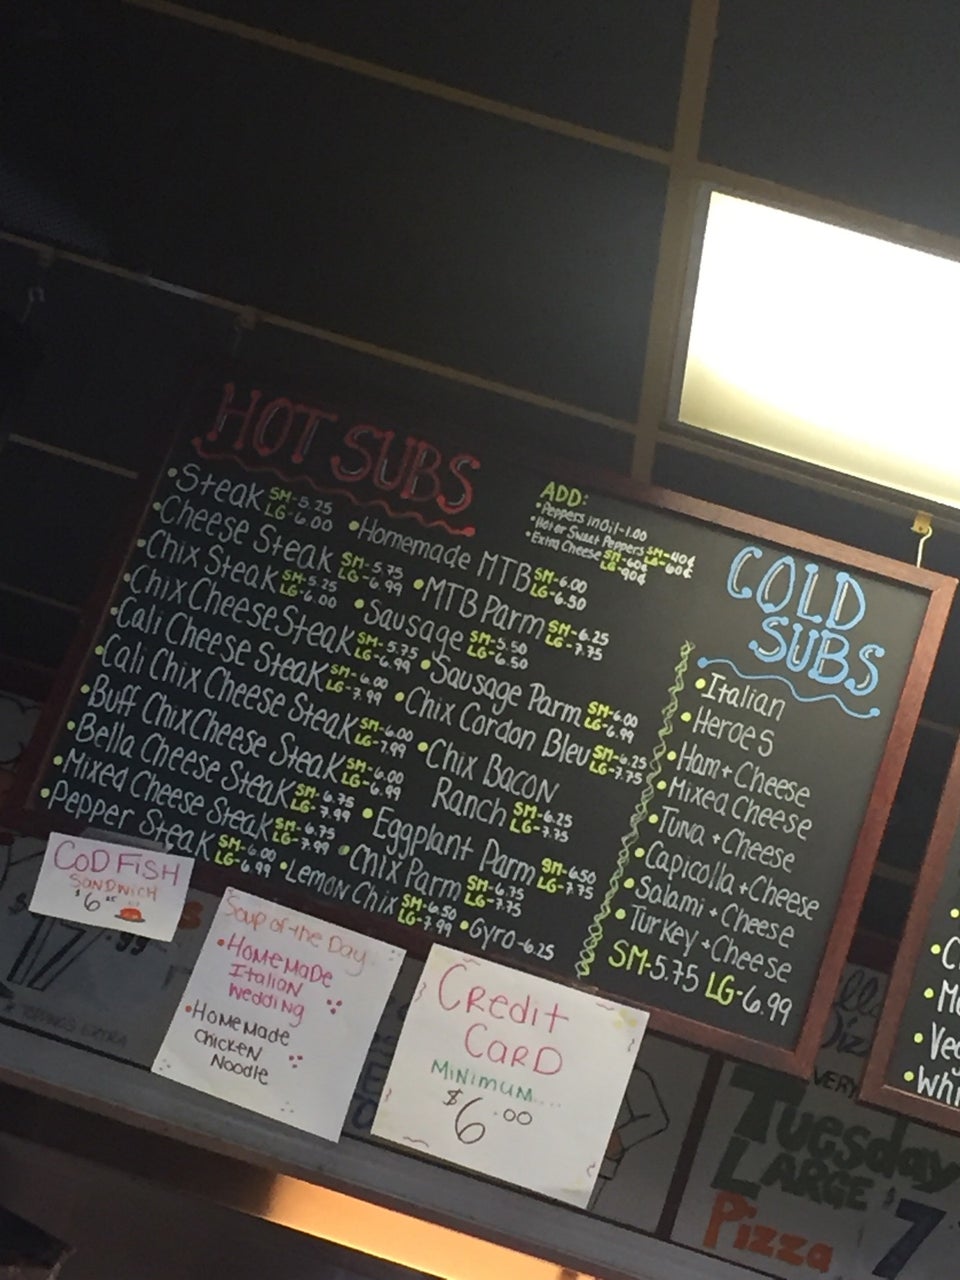 HOT SUBS
•Steak SM-5.25 LG-6.00
•Cheese Steak SM-5.75 LG-6.99
•Chix Steak SM-5.25 LG-6.00
•Chix Cheese Steak SM-5.75 LG-6.99
•Cali Cheese Steak SM-6.00 LG-7.99
•Cali Chix Cheese Steak SM-6.00 LG-7.99
•Buff Chix Cheese Steak SM-6.00 LG-6.99
•Bella Cheese Steak SM-6.75 LG-7.99
•Mixed Cheese Steak SM-6.75 LG-7.99
•Pepper Steak SM-6.00 LG-6.99
•Homemade MTB SM-6.00 LG-6.50
•MTB Parm SM-6.25 LG-7.75
•Sausage SM-5.50 LG-6.50
•Sausage Parm SM-6.00 LG-6.99
•Chix Cordon Bleu SM-6.25 LG-7.75
•Chix BACON
Ranch SM-6.25 LG-7.75
•Eggplant Parm SM-6.50 LG-7.75
•Chix Parm SM-6.75 LG-7.75
•Lemon Chix SM-6.50 LG-7.99
•Gyro-6.25
ADD:
•Peppers in Oil-1.00
•Hot or Sweet Peppers SM-40¢ LG-60¢
•Extra Cheese SM-60¢ LG-90¢
COLD
SUBS
•Italian
•Heroes
•Ham+Cheese
•Mixed Cheese
•Tuna+Cheese
•Capicolla+Cheese
•Salami+Cheese
•Turkey+Cheese
SM-5.75 LG-6.99
COD FISH
SANDWICH
$6
Soup of the Day
•HomeMaDe
Italian
Wedding
•HomeMade
Chicken
Noodle
Credit
CARD
MINIMUM....
$6.00
17.99
TOPPINGS EXTRA
VERY
Tuesday
LARGE $7
Pizza